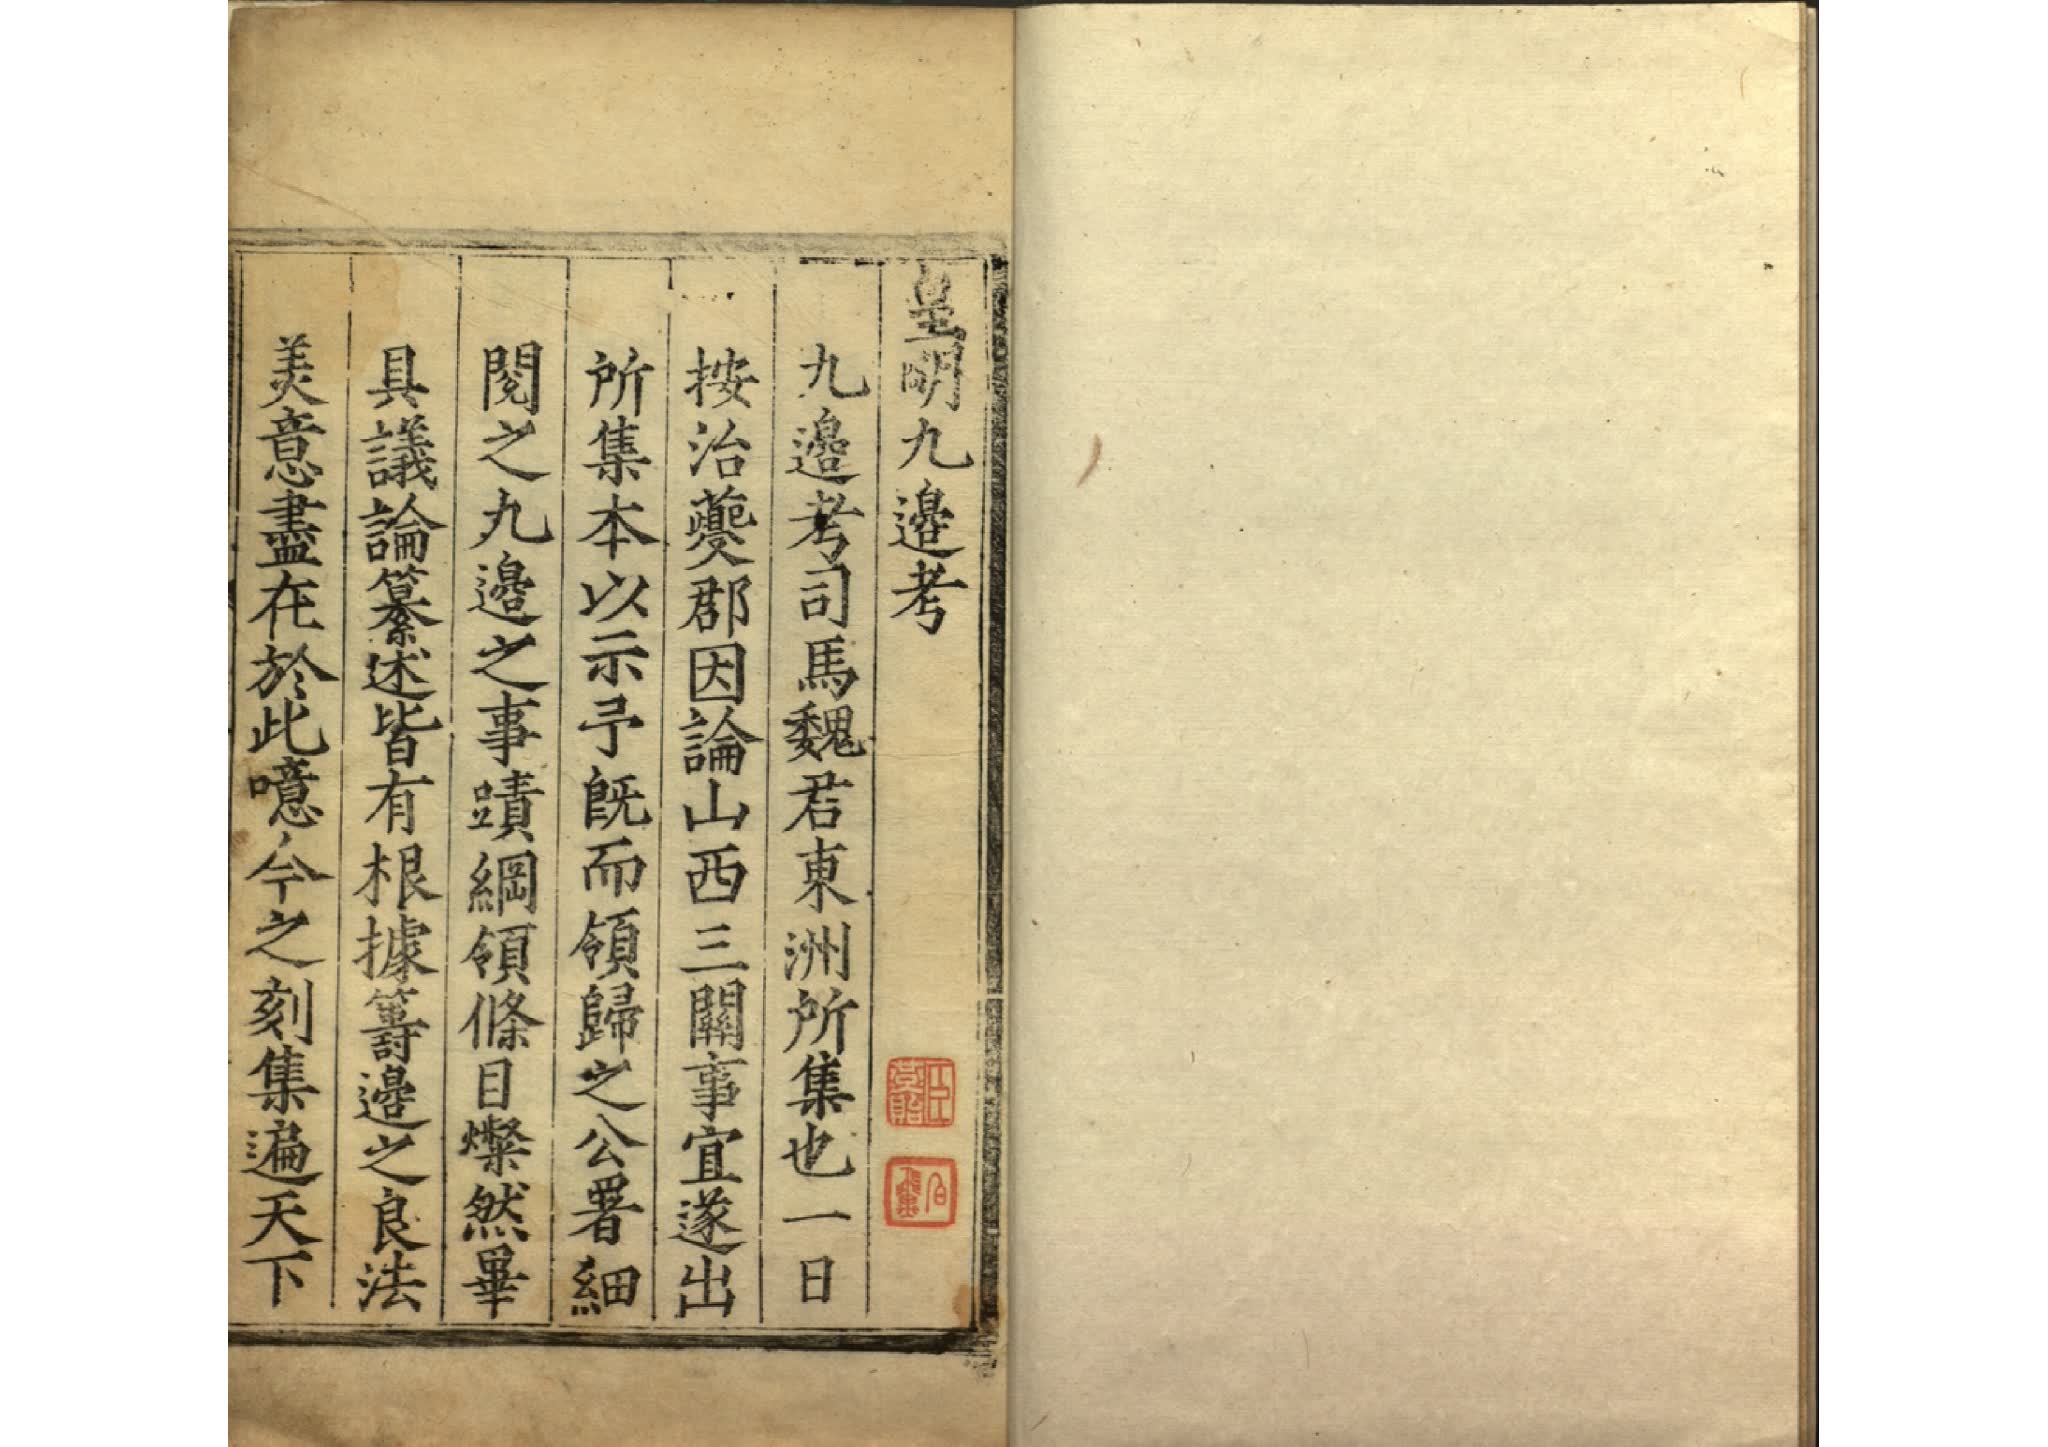 皇明九邊考
九邊考司馬魏君東洲所集也一日
按治夔郡因論山西三關事宜遂出
所集本以示予旣而領歸之公署細
閱之九邊之事蹟綱領條目燦然畢
具議論纂述皆有根據籌邊之良法
美意盡在於此噫今之刻集遍天下